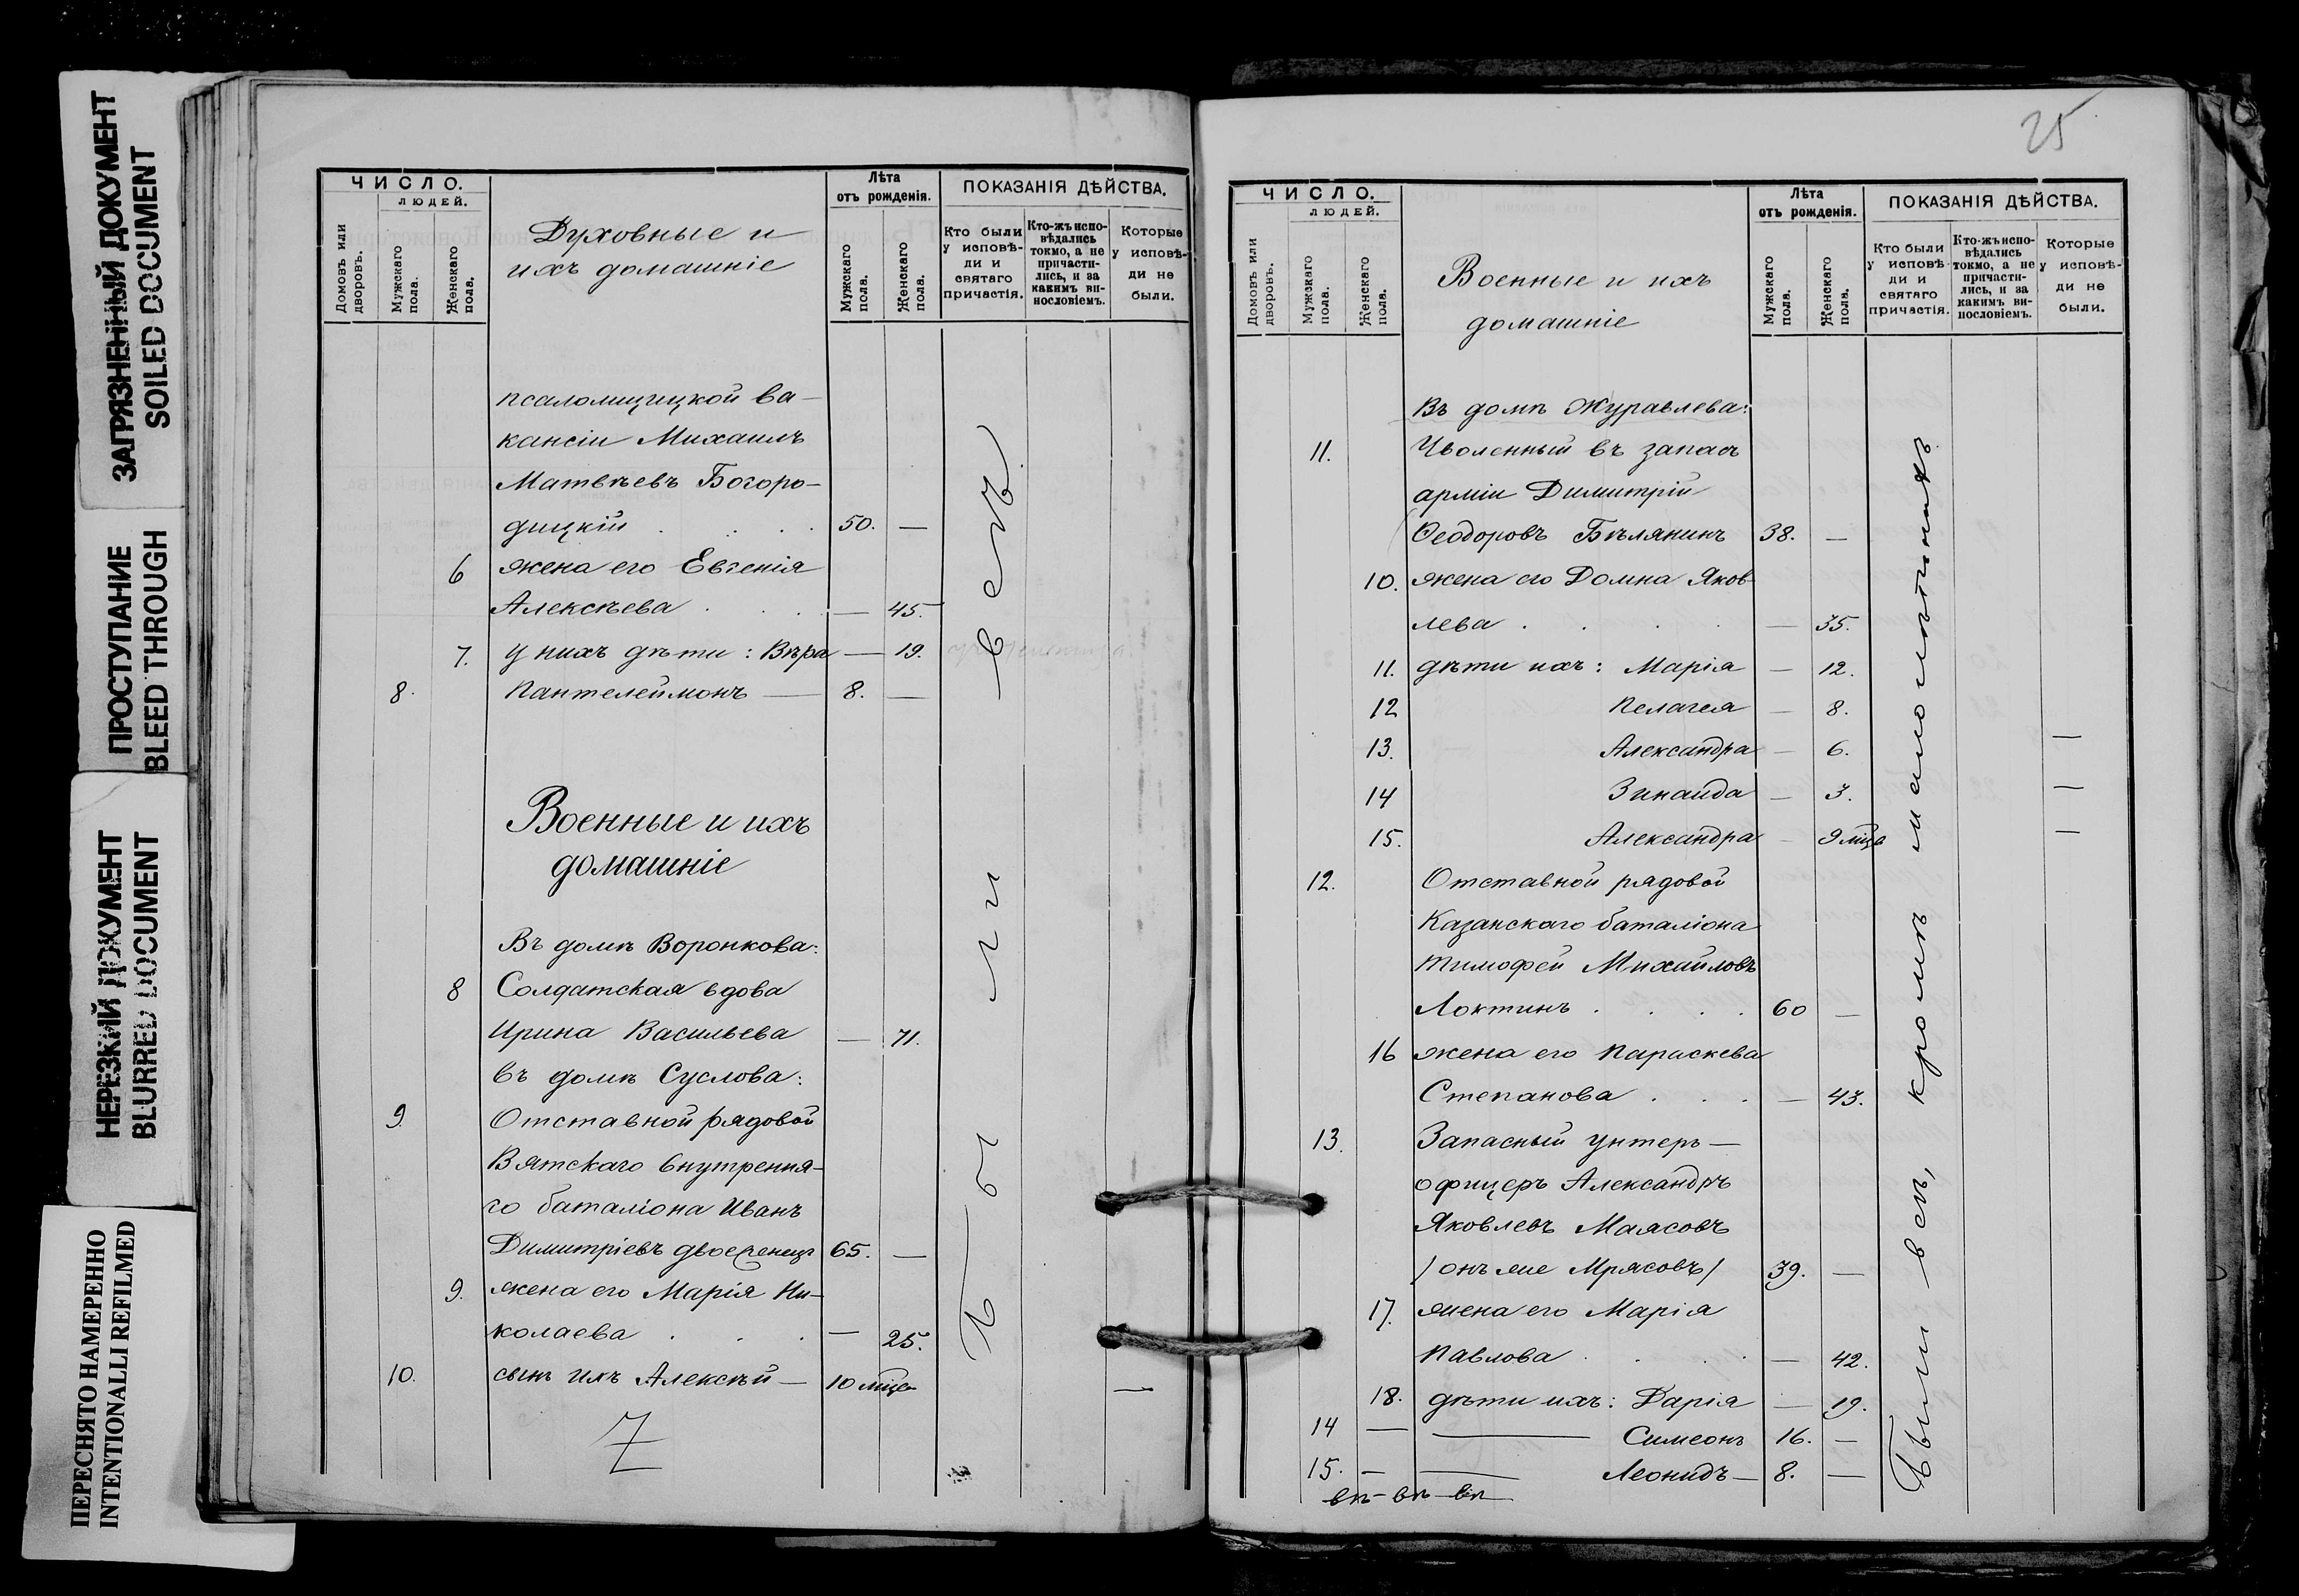 ЗАГРЯЗНЕННЫЙ ДОКУМЕНТ
SOILED DOCUMENT
ПРОСТУПАНИЕ
BLEED THROUGH
НЕРЕЗКИЙ ДОКУМЕНТ
BLURRED DOCUMENT
ПЕРЕСНЯТО НАМЕРЕННО
INTENTIONALLI REFILMED
ЧИСЛО.
ЛЮДЕЙ.
Домовъ или дворовъ.
Мужскаго пола.
Женскаго пола.
Духовные и
ихъ домашніе
Лѣта
отъ рожденія.
Мужскаго пола.
Женскаго пола.
ПОКАЗАНІЯ ДѢЙСТВА.
Кто были у исповѣди и святаго причастія.
Кто-жъ исповѣдались токмо, а не причастились, и за какимъ винословіемъ.
Которые у исповѣди не были.
псаломщицкой ва-
кансіи Михаилъ
Матвѣевъ Богоро-
дицкій . . . 50. —
6 жена его Евгенія
Алексѣева . . . — 45.
7. у нихъ дѣти: Вѣра — 19.
8. Пантелеймонъ — 8. —
Военные и ихъ
домашніе
Въ домѣ Воронкова:
8 Солдатская вдова
Ирина Васильева — 71.
въ домѣ Суслова:
9. Отставной рядовой
Вятскаго внутрення-
го баталіона Иванъ
Димитріевъ 65. —
9. жена его Марія Ни-
колаева . . . — 25.
10. сынъ ихъ Алексѣй — 10 мѣца —
25
ЧИСЛО.
ЛЮДЕЙ.
Домовъ или дворовъ.
Мужскаго пола.
Женскаго пола.
Военные и ихъ
домашніе
Лѣта
отъ рожденія.
Мужскаго пола.
Женскаго пола.
ПОКАЗАНІЯ ДѢЙСТВА.
Кто были у исповѣди и святаго причастія.
Кто-жъ исповѣдались токмо, а не причастились, и за какимъ винословіемъ.
Которые у исповѣди не были.
Въ домѣ Журавлева:
11. Уволенный въ запасъ
арміи Димитрій
Ѳеодоровъ Бѣлянинъ 38. —
10. жена его Домна Яков-
лева . . . — 35.
11. дѣти ихъ: Марія — 12.
12 Пелагея — 8.
13. Александра — 6. —
14 Зинаида — 3. —
15. Александра — 9 мѣца —
12. Отставной рядовой
Казанскаго баталіона
Тимофей Михайловъ
Локтинъ . . . . 60 —
16 жена его Параскева
Степанова . . . — 43.
13. Запасный унтеръ-
офицеръ Александръ
Яковлевъ Маясовъ
/онъ же Мрясовъ/ 39. —
17. жена его Марія
Павлова . . . — 42.
18. дѣти ихъ: Дарія — 19.
14 — Симеонъ 16. —
15. — Леонидъ — 8. —
Были всѣ, кромѣ малолѣтнихъ